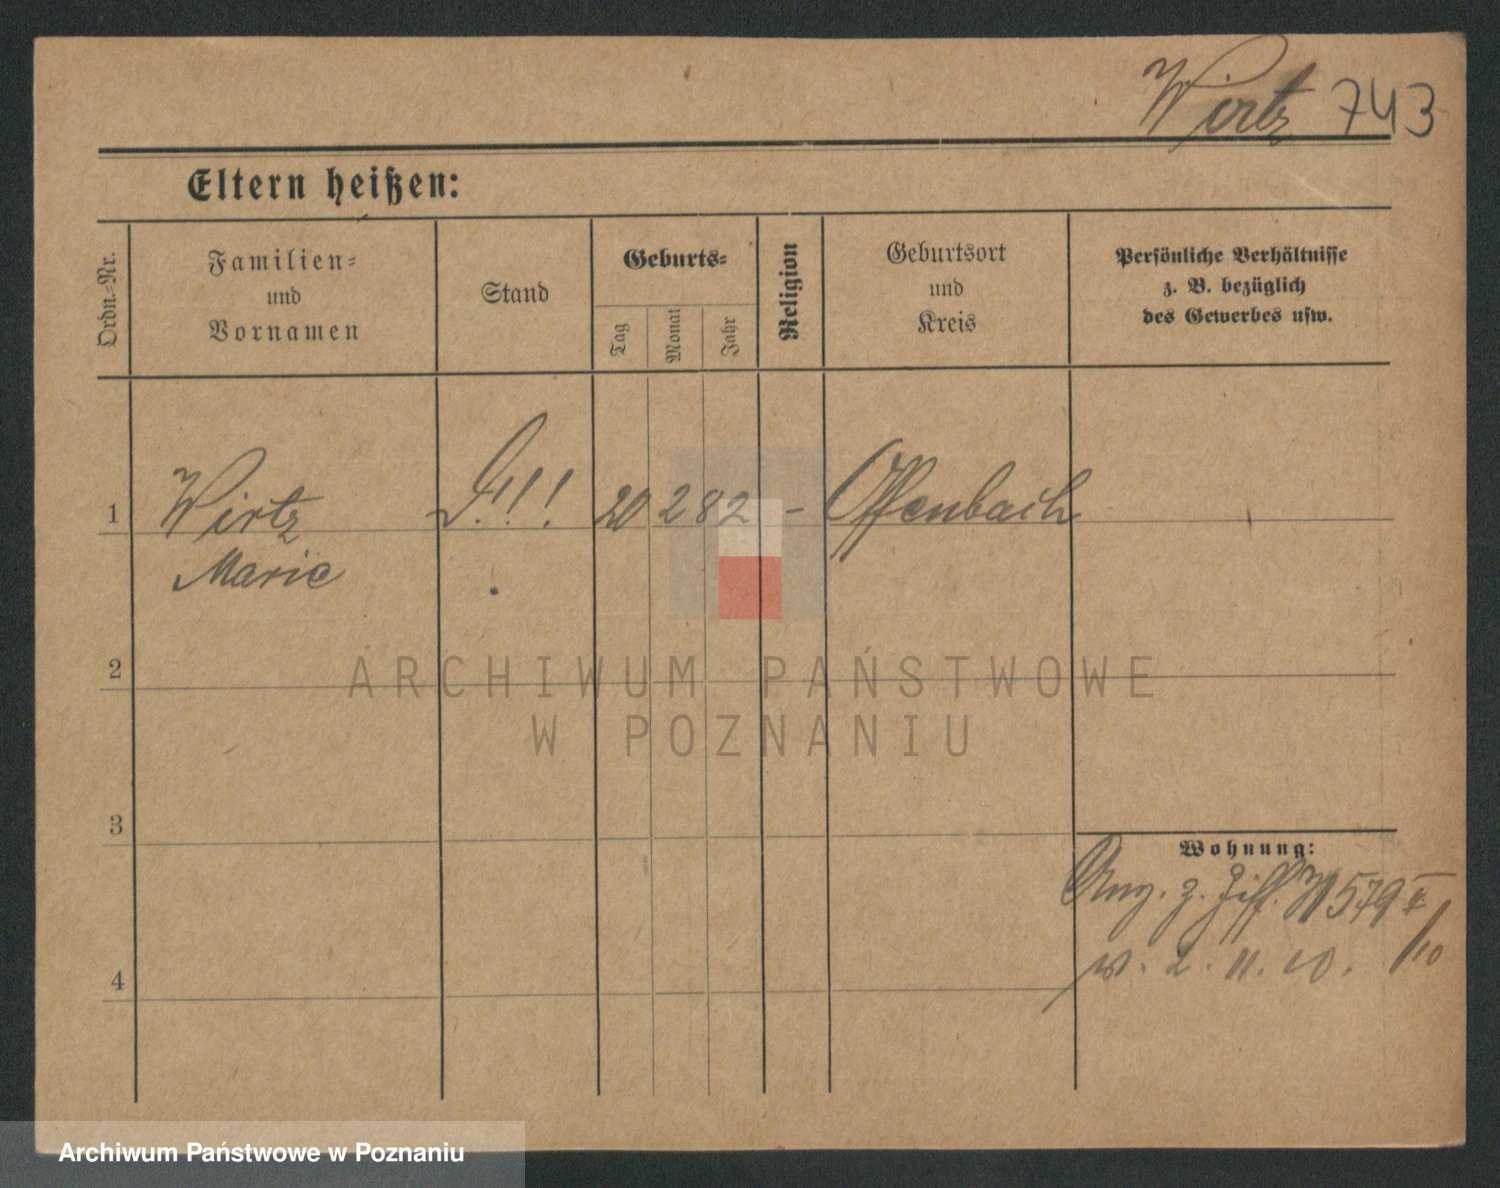 Wirtz 743
Eltern heißen:
Ordn.-Nr.
Familien-
und
Vornamen
Stand
Geburts-
Tag
Monat
Jahr
Religion
Geburtsort
und
Kreis
Persönliche Verhältnisse
z. B. bezüglich
des Gewerbes usw.
1 Wirtz !!! 20 2 82 - Offenbach
Marie
2
ARCHIWUM PAŃSTWOWE
W POZNANIU
3
Wohnung:
Ang. z. Ziff. 579
4
w. 2. 11. 10. /10
Archiwum Państwowe w Poznaniu